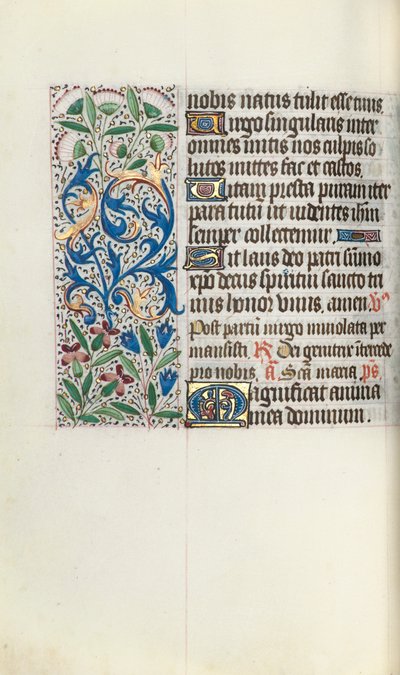 nobis natus tulit esse tuus
Uirgo singularis inter
omnes mitis nos culpis so
lutos mittes fac et castos.
Uitam presta puram iter
para tutū ut uidentes ihm̄
semper colletemur.
Sit laus deo patri sūmo
xpo decus spiritui sancto tri
nus honor vnus. amen V̄
Post partū uirgo inuiolata per
mansisti R̄ Dei genitrix īterce
pro nobis. a̅ Scā maria ps
Magnificat anima
mea dominum.